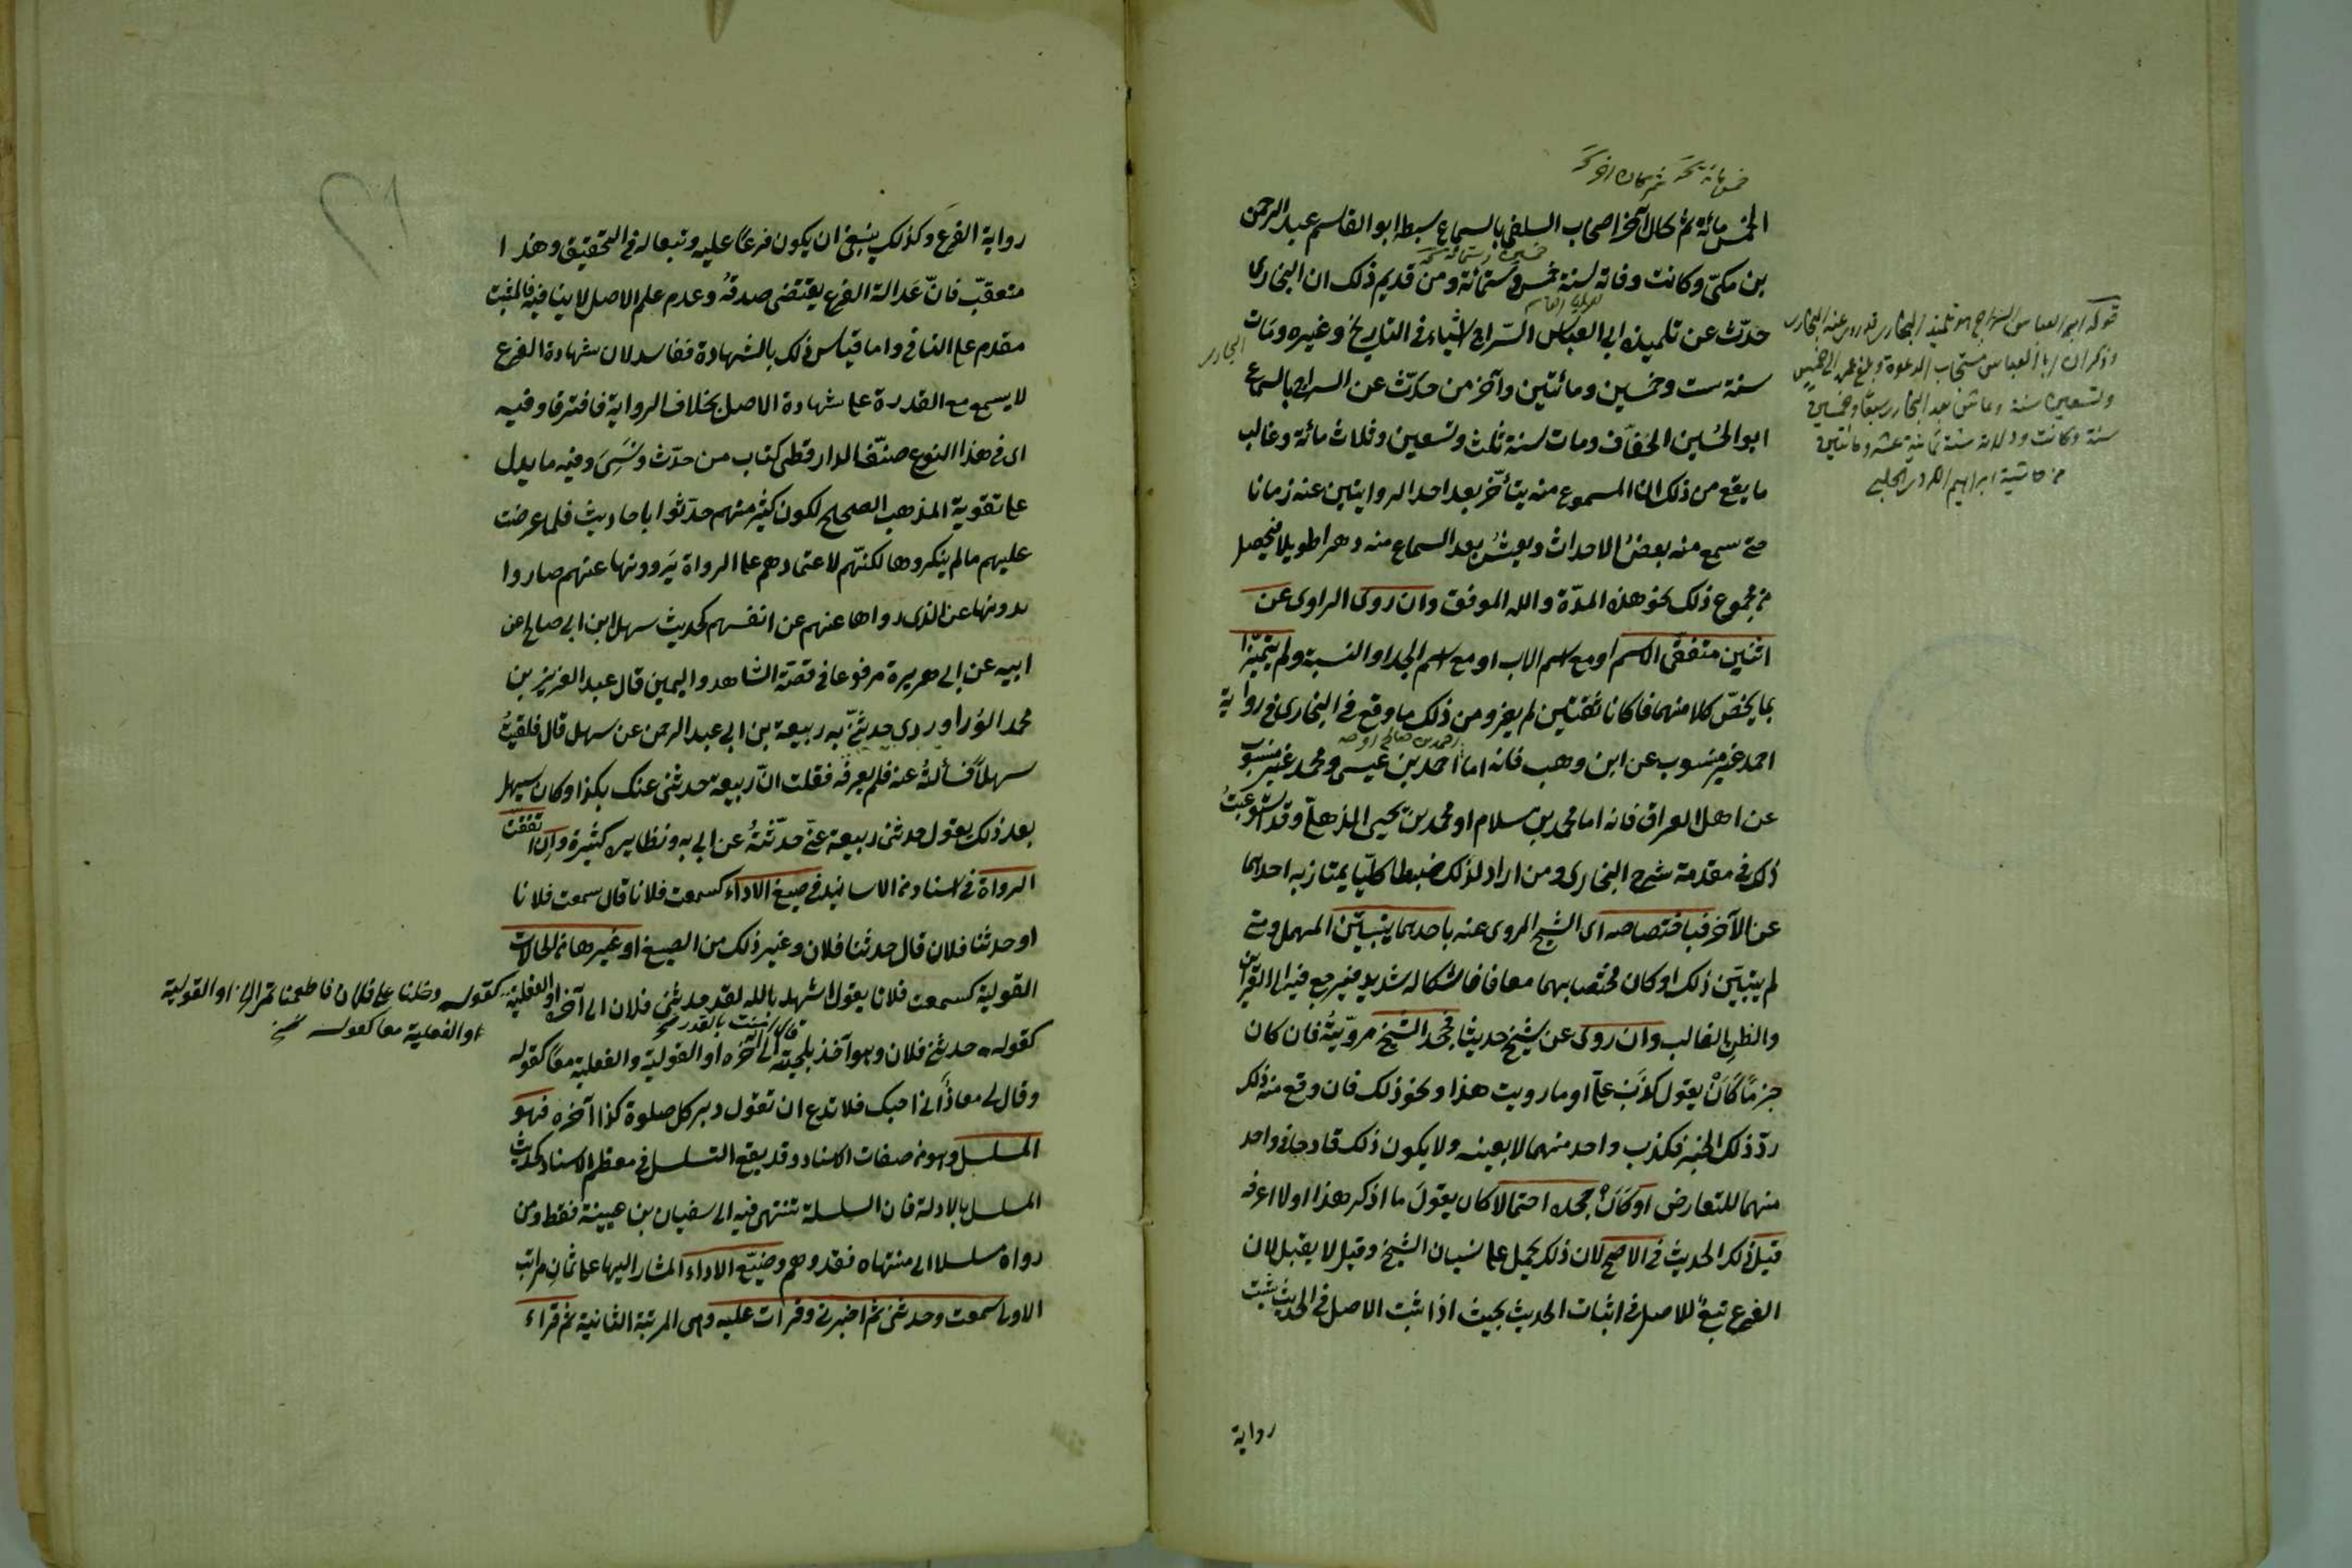 خمسمائة نخـ ثم كان آخر نخـ
الخمس مائة ثم كان آخر اصحاب السلفى بالسماع سبطه ابو القاسم عبد الرحمن
بن مكىّ وكانت وفاته لسنة خمس وستمائة ومن قديم ذلك ان البخارى
خمسين وستمائة نسخه
حدّث عن تلميذه ابى العباس السّراج اشياء فى التاريخ وغيره ومات
البخارى
سنة ست وخمسين ومائتين وآخر من حدّث عن السراج بالسماع
ابو الحُسَين الخفّاف ومات لسنة ثلث وتسعين وثلاث مائة وغالب
ما يقع من ذلك ان المسموع منه يتأخّر بعد احد الروايتين عنه زمانا
حتى سمع منه بعضُ الاحداث ويعيشُ بعد السماع منه دهرا طويلا فيحصل
من مجموع ذلك نحو هذه المدّة والله الموفق وان روى الراوى عن
اثنين متفقى الاسم او مع اسم الاب او مع اسم الجد او النسبة ولم يتميّزا
بما يخصّ كلا منهما فاكانا ثقتين لم يضر ومن ذلك ما وقع فى البخارى فى رواية
احمد غير منسوب عن ابن وهب فانه اما احمد بن عيسى ومحمد غير منسوب
احمد بن صالح او صح
عن اهل العراق فانه اما محمد بن سلام او محمد بن يحيى الذهلىّ وقد استوعبتُ
ذلك فى مقدمة شرح البخارى ومن اراد لذلك ضبطا كلّيّا يمتاز به احدهما
عن الآخر فباختصاصه اى الشيخ المروى عنه باحدهما يتبيّن المهمل ومتى
لم يتبيّن ذلك او كان مختصا بهما معا فاشكاله شديد فيرجع فيه الى القرائن
والظن الغالب وان روى عن شيخ حديثا فجحد الشيخ مرويّهُ فان كان
جزمًا كأنْ يقول كذب علىّ او ما رويت هذا ونحو ذلك فان وقع منه ذلك
ردّ ذلك الخبر لكذب واحد منهما لا بعينه ولا يكون ذلك قادحا فى واحد
منهما للتعارض او كان جحده احتمالا كان يقول ما اذكر هذا او لا اعرفه
قبل ذلك الحديث فى الاصح لان ذلك يحمل على نسيان الشيخ وقيل لا يقبل لان
الفرع تبعٌ للاصل فى اثبات الحديث بحيث اذا ثبت الاصل فى الحديث ثبت
رواية
قوله ابى العباس السراج هو تلميذ البخارى قد روى عنه البخارى
وذكر ان ابا العباس مستجاب الدعوة وبلغ عمره الى خمس
وتسعين سنة وعاش بعد البخارى سبعا وخمسين
سنة وكانت ولادته سنة ثمانية عشر ومائتين
من حاشية ابراهيم الكردى الحلبى
رواية الفرع وكذلك ينبغى ان يكون فرعًا عليه وتبعا له فى التحقيق وهذا
متعقّب فانّ عَدالة الفرع يقتضى صدقهُ وعدم علم الاصل لا ينافيه فالمثبت
مقدم على النافى واما قياس ذلك بالشهادة ففاسد لان شهادة الفرع
لا يسمع مع القدرة على شهادة الاصل بخلاف الرواية فافترقا وفيه
اى فى هذا النوع صنّف الدارقطنى كتاب من حدّث ونَسِىَ وفيه ما يدل
على تقوية المذهب الصحيح لكون كثير منهم حدّثوا باحاديث فلما عرضت
عليهم ما لم ينكروها لكنّهم لاعتمادهم على الرواة يَروونها عنهم صاروا
يروونها عن الذى رواها عنهم عن انفسهم كحديث سهل ابن ابى صالح عن
ابيه عن ابى هريرة مرفوعا فى قصّة الشاهد واليمين قال عبد العزيز بن
محمد الدَّراوردى حدثنىّ به ربيعة بن ابى عبد الرحمن عن سهل قال فلقيتُ
سهلاً فسألتُه عنه فلم يعرفه فقلت انّ ربيعة حدثنى عنك بكذا وكان سهل
بعد ذلك يقول حدثنى ربيعة عنّى حدّثتهُ عن ابى به ونظايره كثيرة وان اتفقت
الرواة فى اسناد من الاسانيد فى صيغ الاداء كسمعت فلانا قال سمعت فلانا
او حدثنا فلان قال حدثنا فلان وغير ذلك من الصيغ او غيرها من الحالات
القولية كسمعت فلانا يقول اشهد بالله لقد حدثنى فلان الى آخره او الفعلية
كقوله دخلنا على فلان فاطعمنا تمرا الخ او القولية
او الفعلية معا كقوله نسخ
كقوله حدثنى فلان وهو آخذ بلحيته الى آخره او القولية والفعلية معًا كقوله
قال آمنت بالقدر صح
وقال لى معاذُ انى احبك فلا تدع ان تقول دبر كل صلوة كذا آخره فهو
المسلسل وهو من صفات الاسناد وقد يقع التسلسل فى معظم الاسناد كحديث
المسلسل بالاولة فان السلسلة تنتهى فيه الى سفيان بن عيينة فقط ومن
رواه مسلسلا الى منتهاه فقد وهم وصِيَغ الاداء المشار اليها على ثمانِ مراتب
الاولى سمعت وحدثنى ثم اخبرنى وقرات عليه وهى المرتبة الثانية ثم قراء